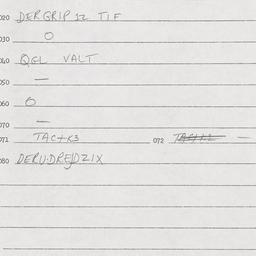 020 DERGRIP 12 TIF
030 O
040 QGL VALT
050 —
060 O
070 —
071 TAC+K3 072 —
080